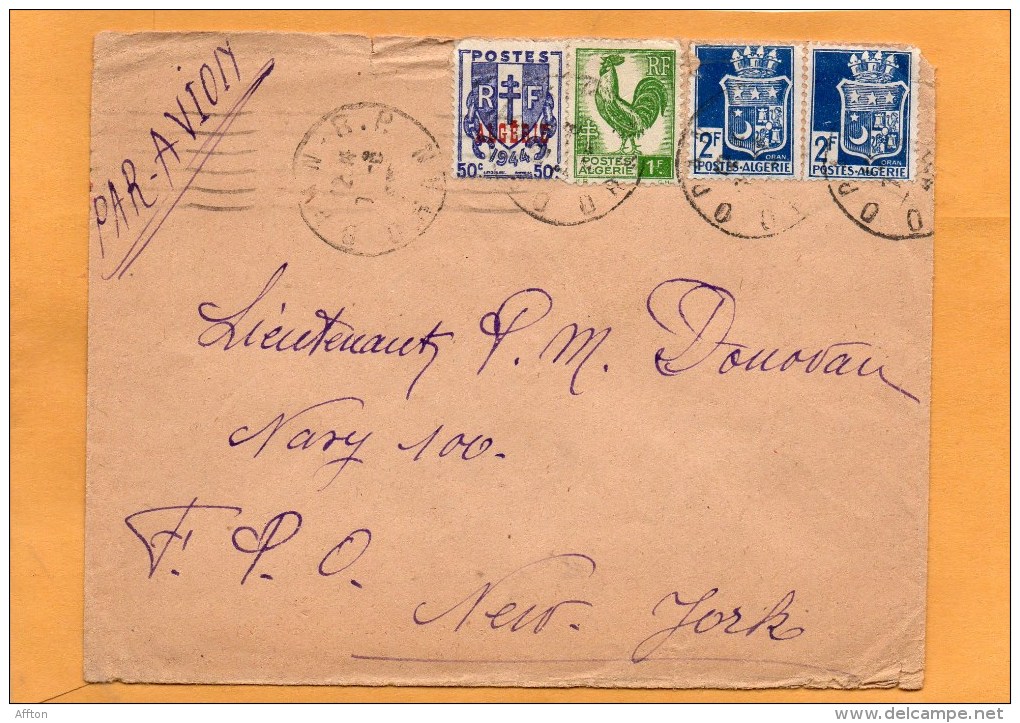 PAR-AVION
POSTES
R F
ALGÉRIE
1944
50c 50c
RF
POSTES
ALGERIE 1F
2F ORAN
POSTES-ALGERIE
2F ORAN
POSTES-ALGERIE
ORAN-R.P.
Lieutenant P. M. Donovan
Navy 100.
F. P. O.
New. York
Affton
delcampe.net